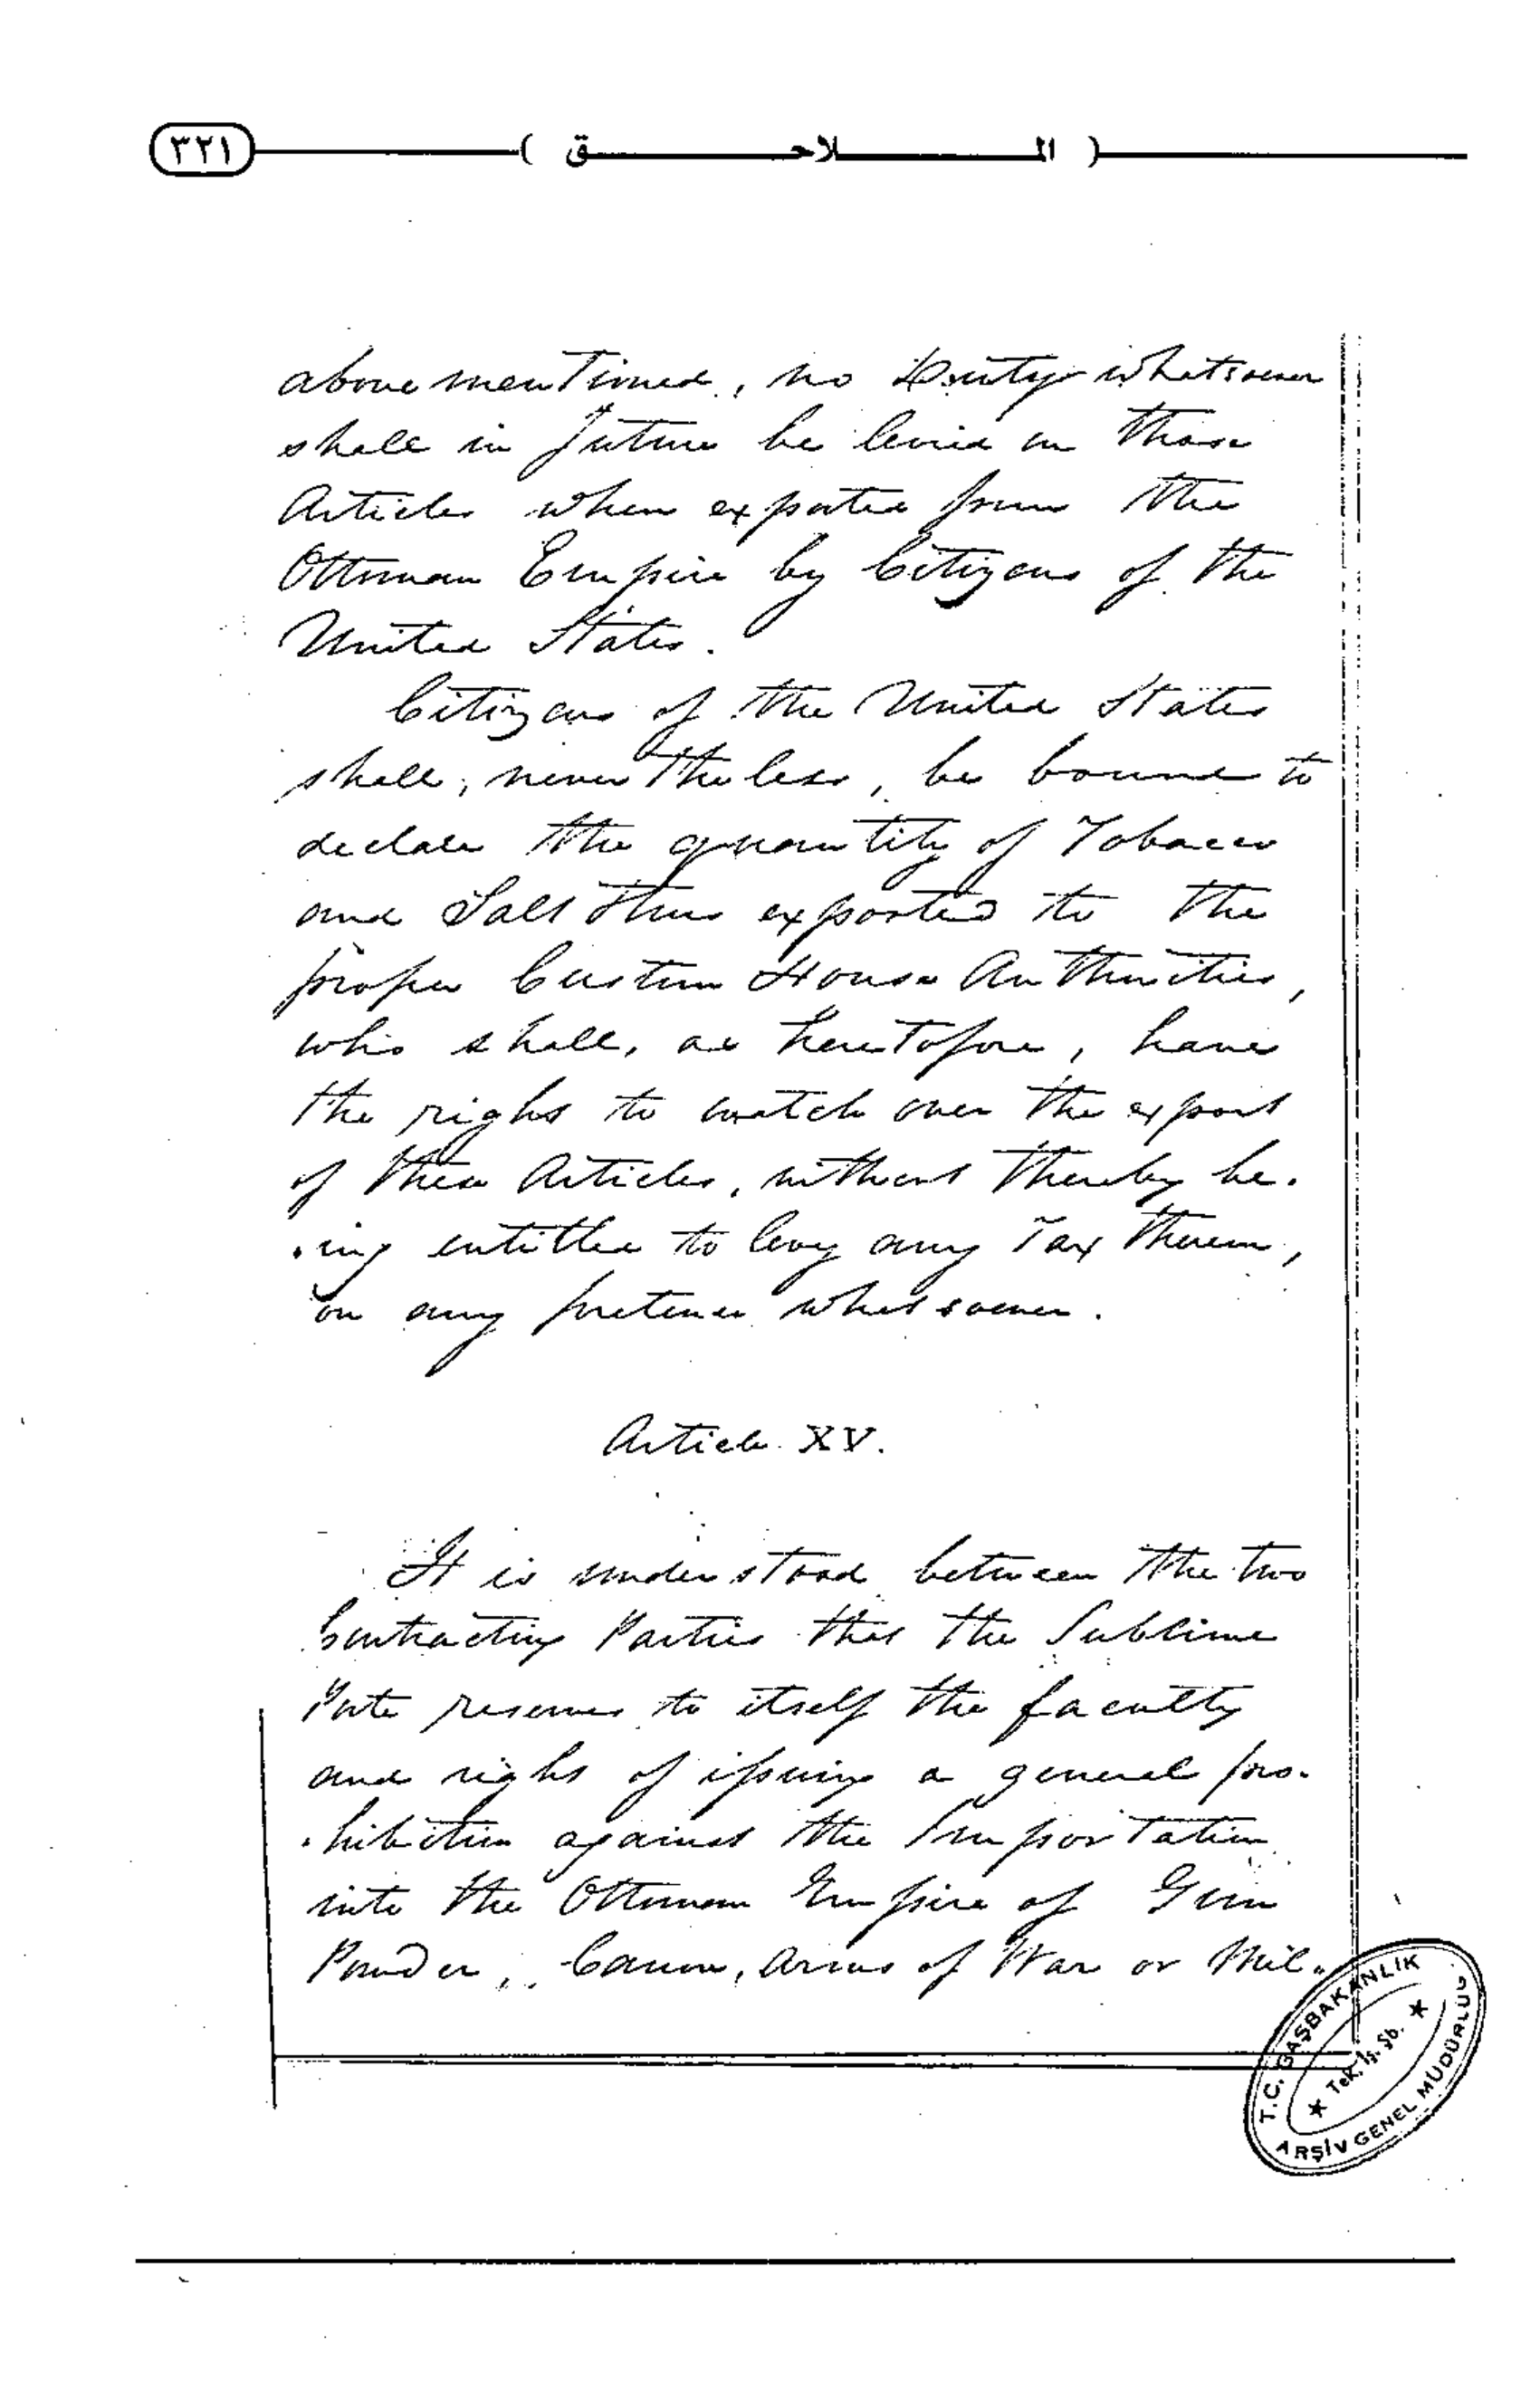 ٣٢١
( الملاحق )
above mentioned, no Duty whatsoever
shall in future be levied on those
Articles when exported from the
Ottoman Empire by Citizens of the
United States.
Citizens of the United States
shall, nevertheless, be bound to
declare the quantity of Tobacco
and Salt thus exported to the
proper Custom House Authorities,
who shall, as heretofore, have
the right to watch over the export
of these Articles, without thereby be-
-ing entitled to levy any Tax thereon,
on any pretence whatsoever.
Article XV.
It is understood between the two
Contracting Parties that the Sublime
Porte reserves to itself the faculty
and right of issuing a general pro-
-hibition against the Importation
into the Ottoman Empire of Gun
Powder, Canon, Arms of War or Mil-
T.C. BAŞBAKANLIK
★ Tek. İş. Şb. ★
ARŞİV GENEL MÜDÜRLÜĞÜ